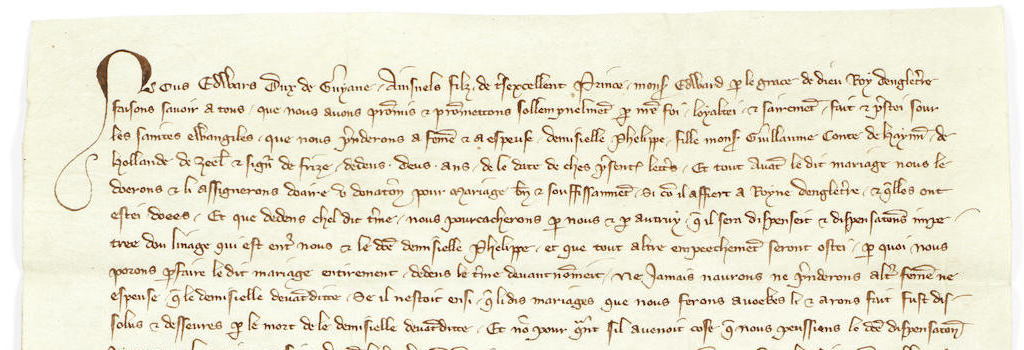 Nous Edwars Dux de Guyane, Ainsnels filz, de tsexcellent Prince, mons Edward p le grace de dieu Roy dengletre
faisons savoir a tous, que nous avons pmis & pmettons sollempnelmet p nre foi, loyaltei, & sairemet, fait & pstei sour
les saintes ewangiles, que nous pnderons a feme & a espeuse, demiselle Phelippe, fille mons Guillaume Conte de Haynn, de
Hollande de Zeel & sign de frize, dedens, deus, ans, de le date de ches psent lettes, Et tout Avat le dit mariage nous le
doerons & li assignerons doaire v donaton pour mariage bn & souffissanmet, Si co il affiert a Royne dengletre, & qlles ont
estei doees, Et que dedens chel dit tme, nous pourcacherons p nous & p autruy, q il sera dispensei & dispensations inpe
tree dou linage qui est entre nous & le dte demiselle Phelippe, et que tout altre empeechemet seront ostei, p quoi nous
porons pfaire le dit mariage entirement, dedens le tme devant nomeit, Ne Jamais naurons ne pnderons alt feme ne
espeuse, q le demiselle devadditte, Se il nestoit ensi, q lidis mariages que nous ferons avockes li & arons fait fust dis
solus & desseures p le mort de le demiselle devadditte, Et no pour qnt sil avenoit cose q nous peussiens le dte dispensaton